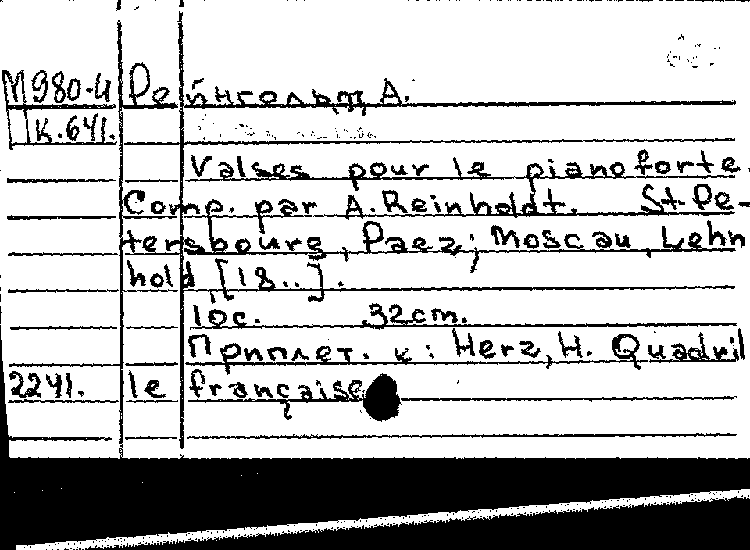 М980-4 Рейнгольдт, А.
К.641.
Valses pour le pianoforte.
Comp. par A. Reinholdt. St-Pe-
tersbourg, Paez; Moscau, Lehn
hold, [18..].
10с. 32cm.
Приплет. к: Herz, H. Quadril
2241. le française